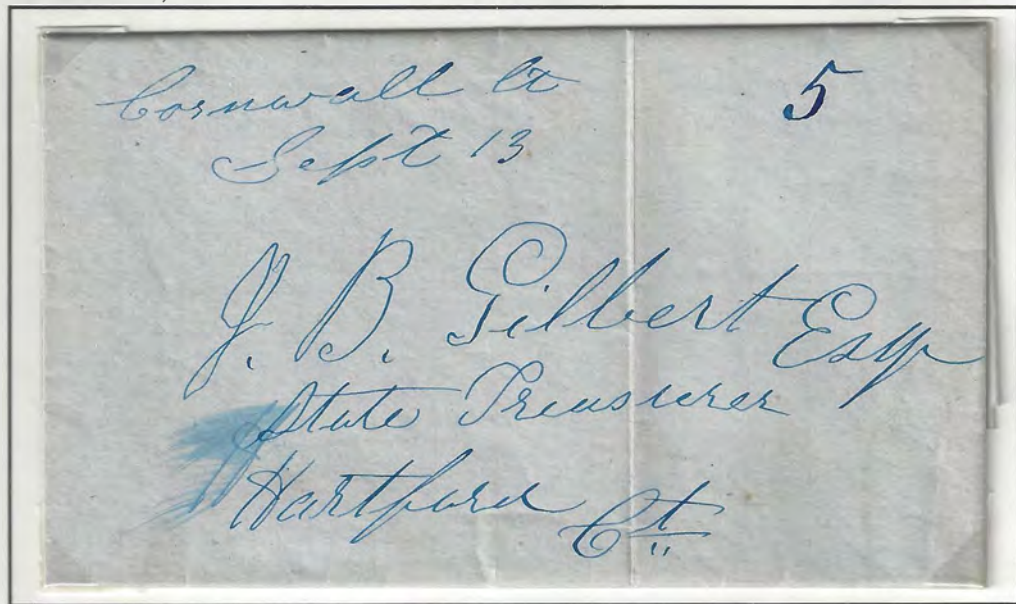 Cornwall Ct
Sept 13
5
J. B. Gilbert Esqr
State Treasurer
Hartford
Ct